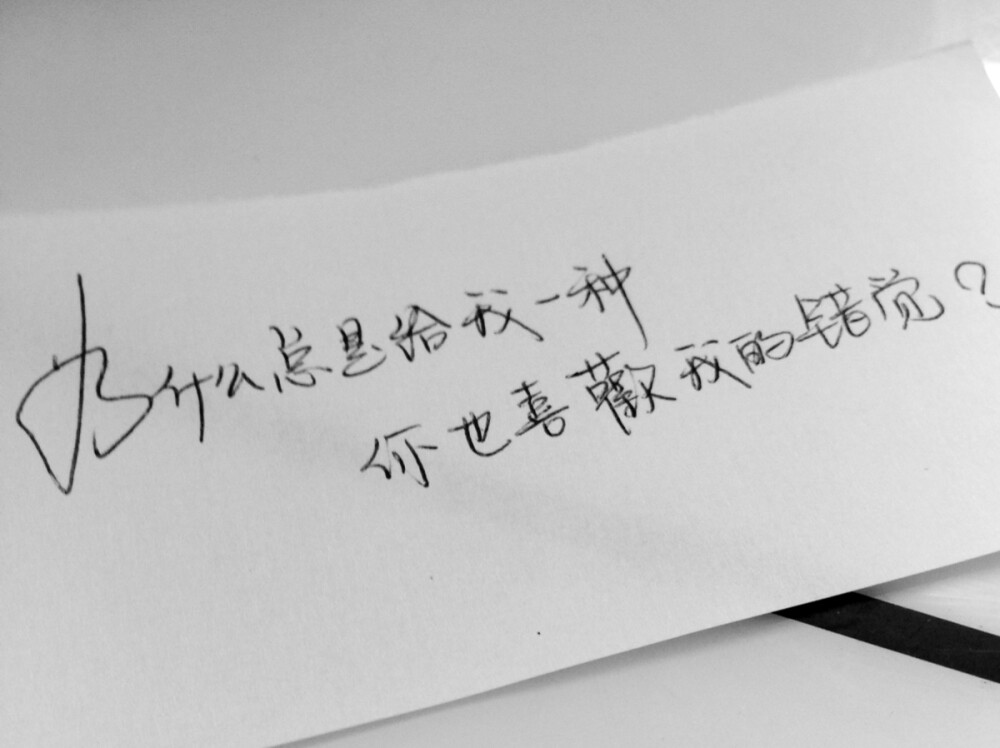 为什么总是给我一种
你也喜歡我的错觉？